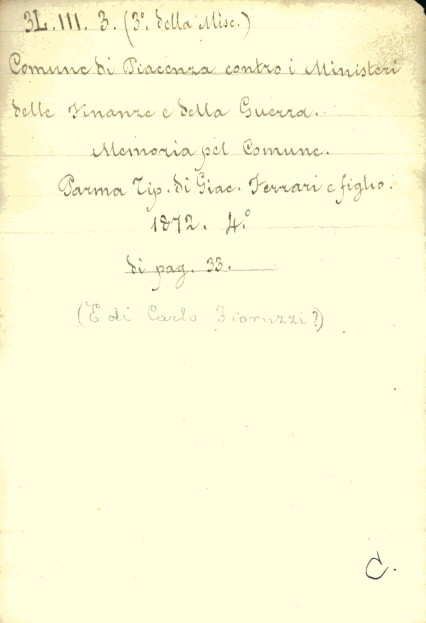 3L. III. 3. (3º. della Misc.)
Comune di Piacenza contro i Ministeri
delle Finanze e della Guerra.
Memoria pel Comune.
Parma Tip. di Giac. Ferrari e figlio.
1872. 4.º
di pag. 33.
(È di Carlo Fioruzzi?)
C.